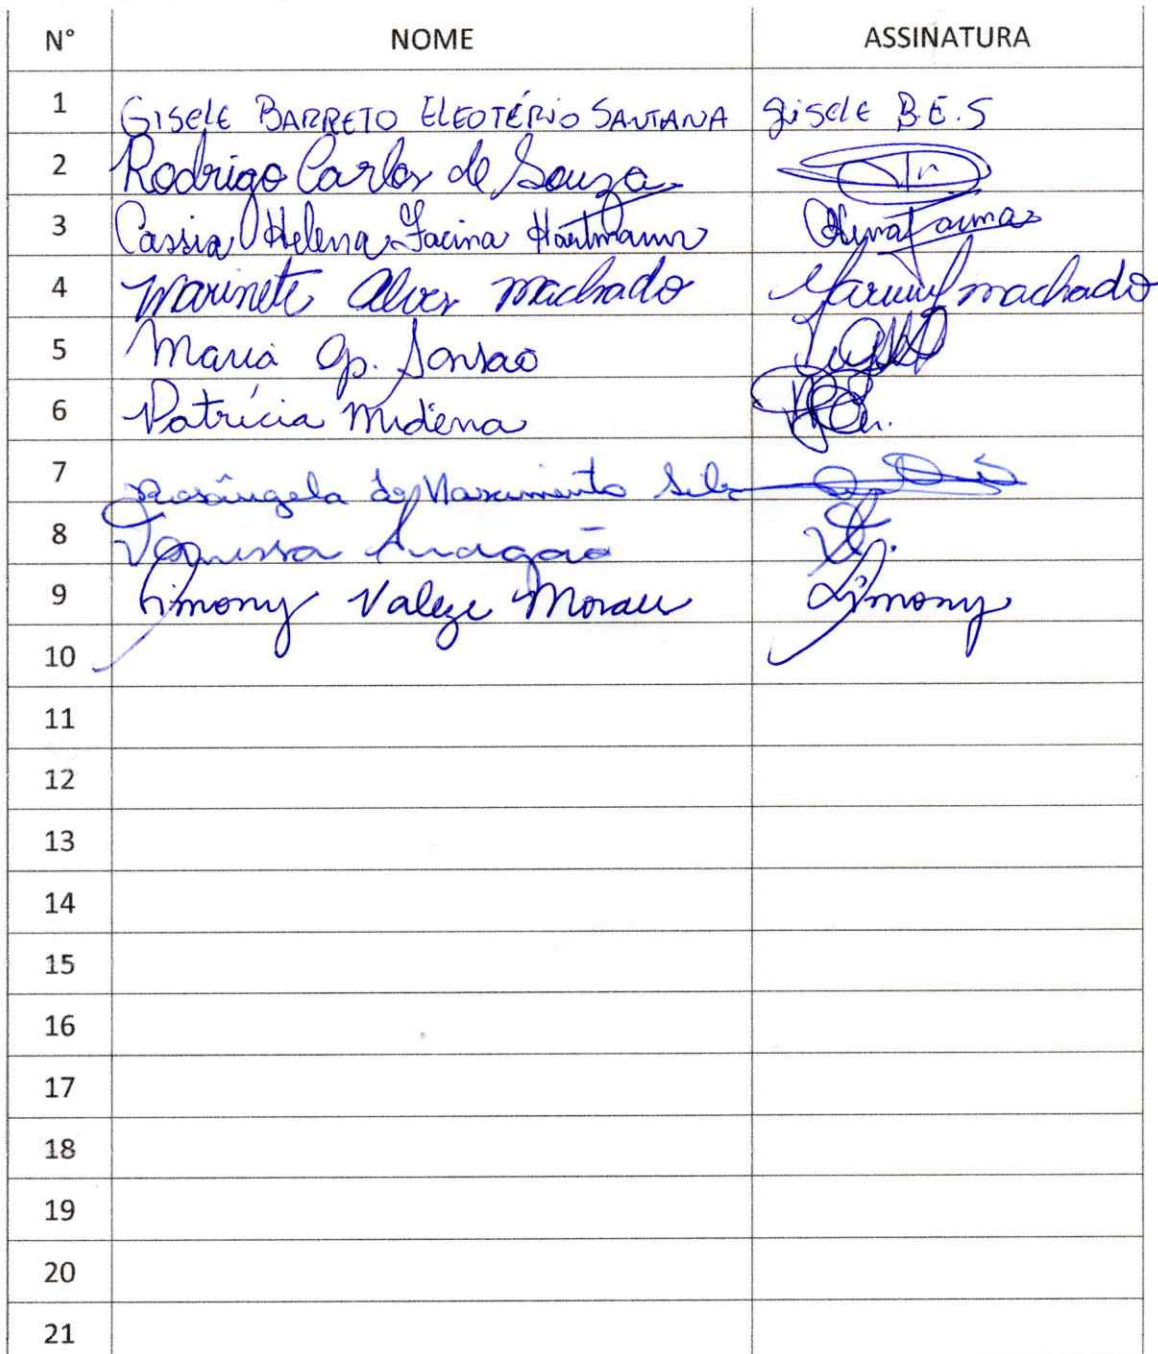 N° NOME ASSINATURA
1 GISELE BARRETO ELEOTÉRIO SANTANA Gisele B.E.S
2 Rodrigo Carlos de Souza
3 Cassia Helena Facina Hartmann
4 Marinete Alves machado machado
5 Maria Ap. Sansão
6 Patrícia Midena
7 Rosângela do Nascimento Silva
8 Vanessa Aragão
9 Simony Valeze Moraes Simony
10
11
12
13
14
15
16
17
18
19
20
21